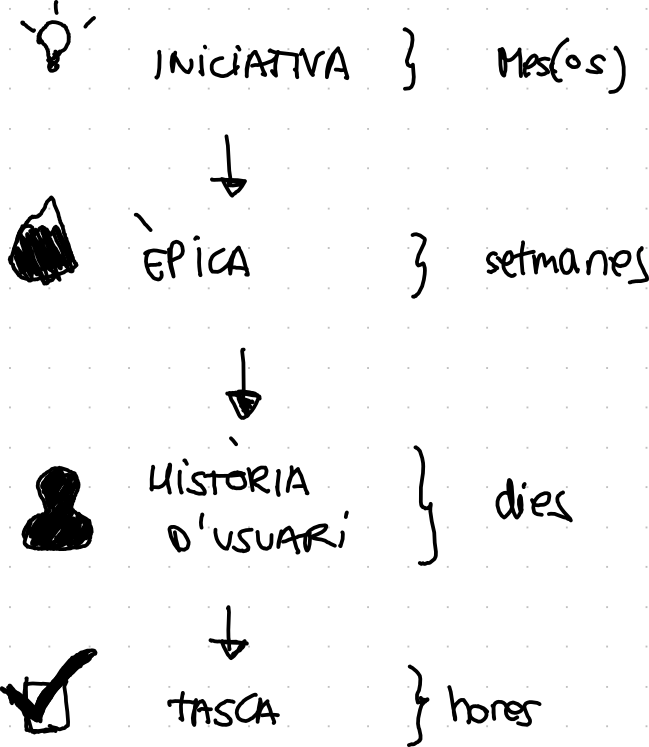 INICIATIVA } Mes(os)
ÈPICA } setmanes
HISTÒRIA
D'USUARI } dies
TASCA } hores